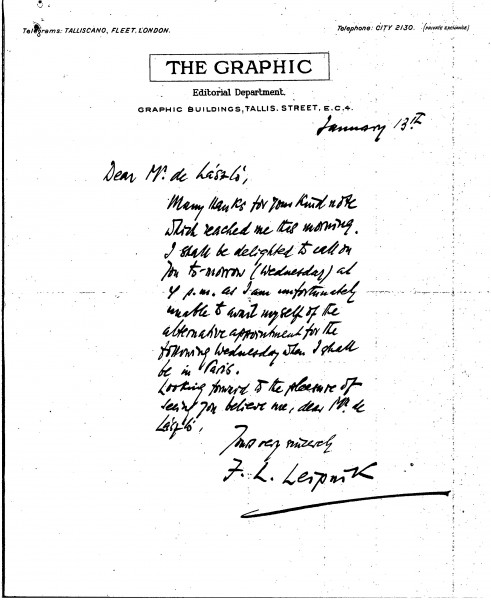 Telegrams: TALLISCANO, FLEET. LONDON.
Telephone: CITY 2130. (PRIVATE EXCHANGE)
THE GRAPHIC
Editorial Department.
GRAPHIC BUILDINGS, TALLIS. STREET, E.C.4.
January 13th
Dear Mr. de László,
Many thanks for your kind note
which reached me this morning.
I shall be delighted to call on
you to-morrow (Wednesday) at
4 p.m. as I am unfortunately
unable to avail myself of the
alternative appointment for the
following Wednesday when I shall
be in Paris.
Looking forward to the pleasure of
seeing you believe me, dear Mr. de
László,
Yours very sincerely
F. L. Leipnik